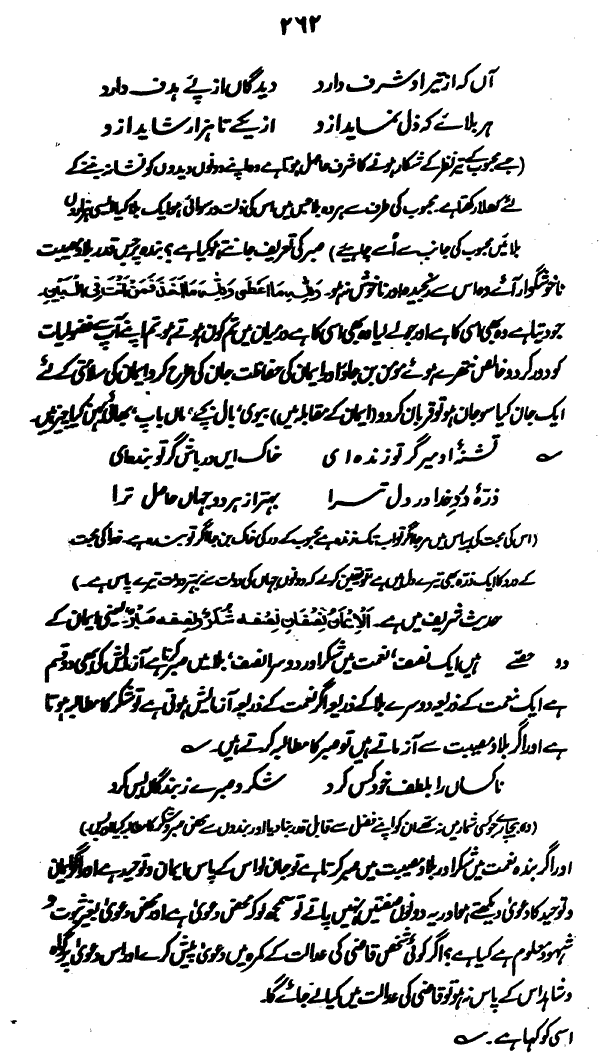 ۲۶۲
آں کہ از تیر او شرف دارد دیدگاں از پئے ہدف دارد
ہر بلائے کہ دل نماید ازو از یکے تا ہزار شاید ازو
(جسے محبوب کے تیر نظر کے شکار ہونے کا شرف حاصل ہوتا ہے وہ اپنے دونوں دیدوں کو نشانہ بننے کے
لئے کھلا رکھتا ہے۔ محبوب کی طرف سے ہر وہ بلا جس میں اس کی ذلت و رسوائی ہو ایک بلا کیا ایسی ہزاروں
بلائیں محبوب کی جانب سے اُسے چاہیئے) صبر کی تعریف جانتے ہو کیا ہے؟ بندہ پر جس قدر بلا و مصیبت
ناخوشگوار آئے وہ اس سے رنجیدہ اور ناخوش نہ ہو۔ وَلِلّٰہِ مَا اَعْطٰی وَلِلّٰہِ مَا اَخَذَ فَمَنْ اَنْتَ فِی الْبَیْنِ۔
جو دیتا ہے وہ بھی اسی کا ہے اور جو لے لیا وہ بھی اسی کا ہے درمیان میں تم کون ہوتے ہو تم اپنے آپ سے فضولیات
کو دور کر دو خالص نتھرے ہوئے مومن بن جاؤ اور ایمان کی حفاظت جان کی طرح کرو ایمان کی سلامتی کے لئے
ایک جان کیا سو جان ہو تو قربان کر دو (ایمان کے مقابلہ میں) بیوی، بال بچے، ماں باپ، بھائی بہن کیا چیز ہیں۔
تشنۂ او میر گر تو زندہ ای خاک ایں در باش گر تو بندہ ای
ذرۂ دردِ خدا در دل ترا بہتر از ہر دو جہاں حاصل ترا
(اس کی محبت کی پیاس میں مر جا اگر تو اب تک زندہ ہے محبوب کے در کی خاک بن جا اگر تو بندہ ہے۔ خدا کی محبت
کے درد کا ایک ذرہ بھی تیرے دل میں ہے تو یقین کر لے کہ دونوں جہاں کی دولت سے بہتر دولت تیرے پاس ہے۔)
حدیث شریف میں ہے۔ اَلْاِیْمَانُ نِصْفَانِ نِصْفُہ شُکْرٌ وَنِصْفُہ صَبْرٌ یعنی ایمان کے
دو حصّے ہیں ایک نصف، نعمت میں شکر اور دوسرا نصف، بلا میں صبر کرنا ہے آزمائش کی بھی دو قسم
ہے ایک نعمت کے ذریعہ دوسرے بلا کے ذریعہ اگر نعمت کے ذریعہ آزمائش ہوتی ہے تو شکر کا مطالبہ ہوتا
ہے اور اگر بلا و مصیبت سے آزماتے ہیں تو صبر کا مطالبہ کرتے ہیں۔
ناکساں را بلطف خود کس کرد شکر و صبرے ز بندگاں بس کرد
(وہ بیچارے جو کسی شمار میں نہ تھے ان کو اپنے فضل سے قابل قدر بنا دیا اور بندوں سے محض صبر و شکر کا مطالبہ کیا اور بس)
اور اگر بندہ نعمت میں شکر اور بلا و مصیبت میں صبر کرتا ہے تو جان لو اس کے پاس ایمان و توحید ہے اور اگر ایمان
و توحید کا دعویٰ دیکھتے ہو اور یہ دونوں صفتیں نہیں پاتے تو سمجھ لو کہ محض دعویٰ ہے اور محض دعویٰ بغیر ثبوت و
شہود معلوم ہے کیا ہے؟ اگر کوئی شخص قاضی کی عدالت کے کمرہ میں دعویٰ پیش کرے اور اس دعویٰ پر گواہ
و شاہد اس کے پاس نہ ہو تو قاضی کی عدالت میں کیا لے جائے گا۔
اسی کو کہا ہے۔